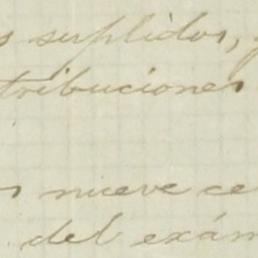 s suplidos,
tribuciones
s nueve ce
del exám